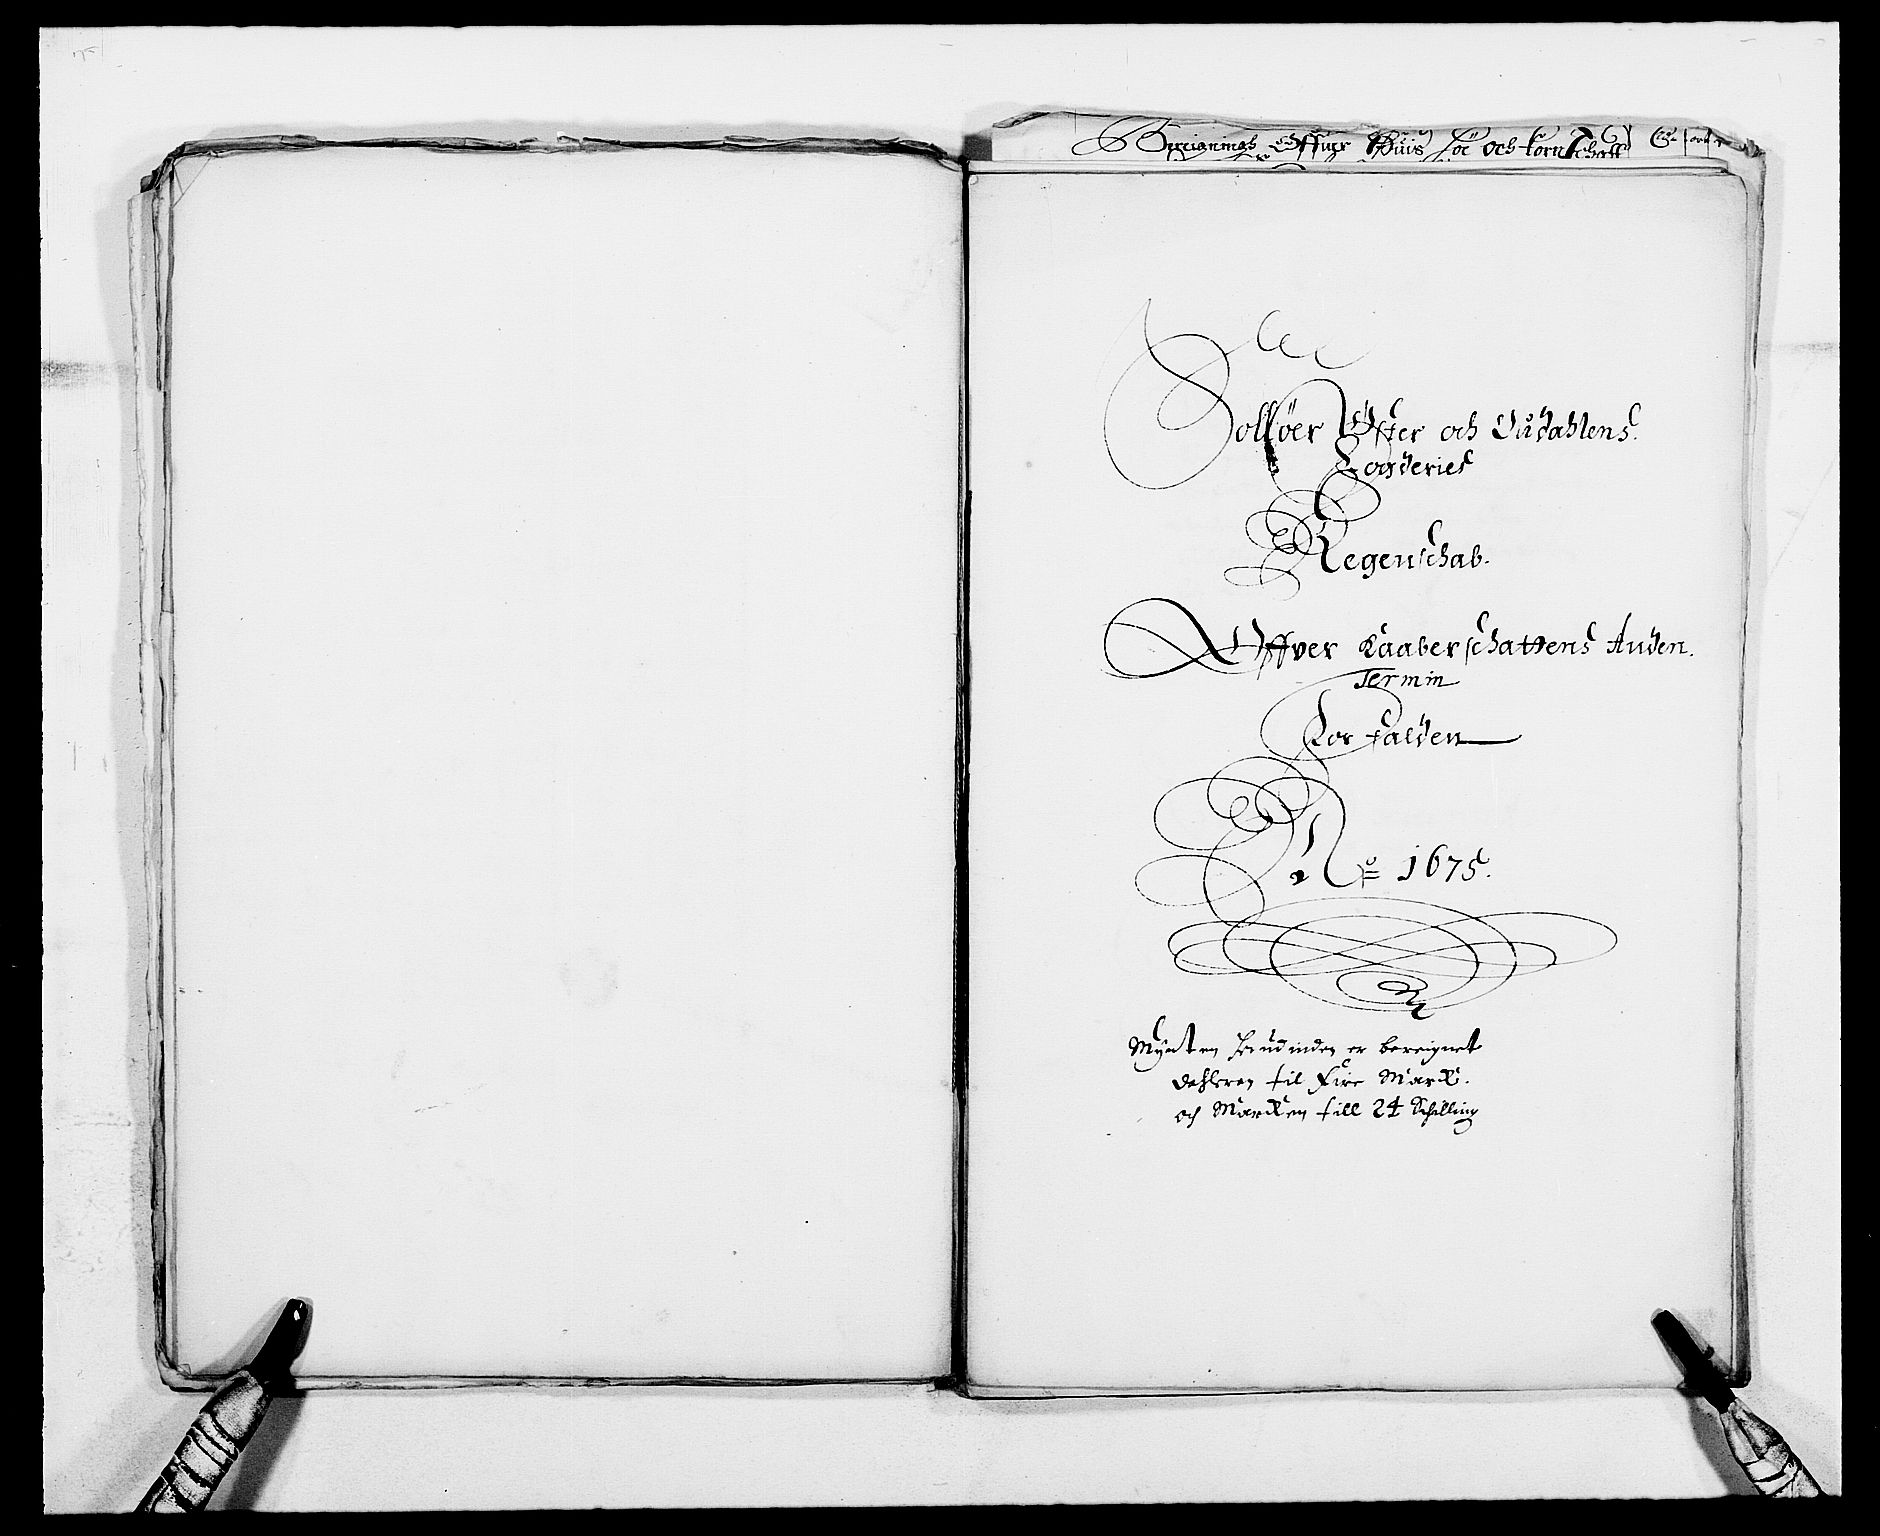 Bereignings Offuer Huus Høe och korn schatt
Solløer Øster och Oudahlens
Fogderies
Regenschab.
Offver Kaaber schattens Anden
Termin
Forfalden
Ao 1675.
Mynten herudinden er bereignet
dahleren til Fire Marck.
och Marcken till 24 Schilling